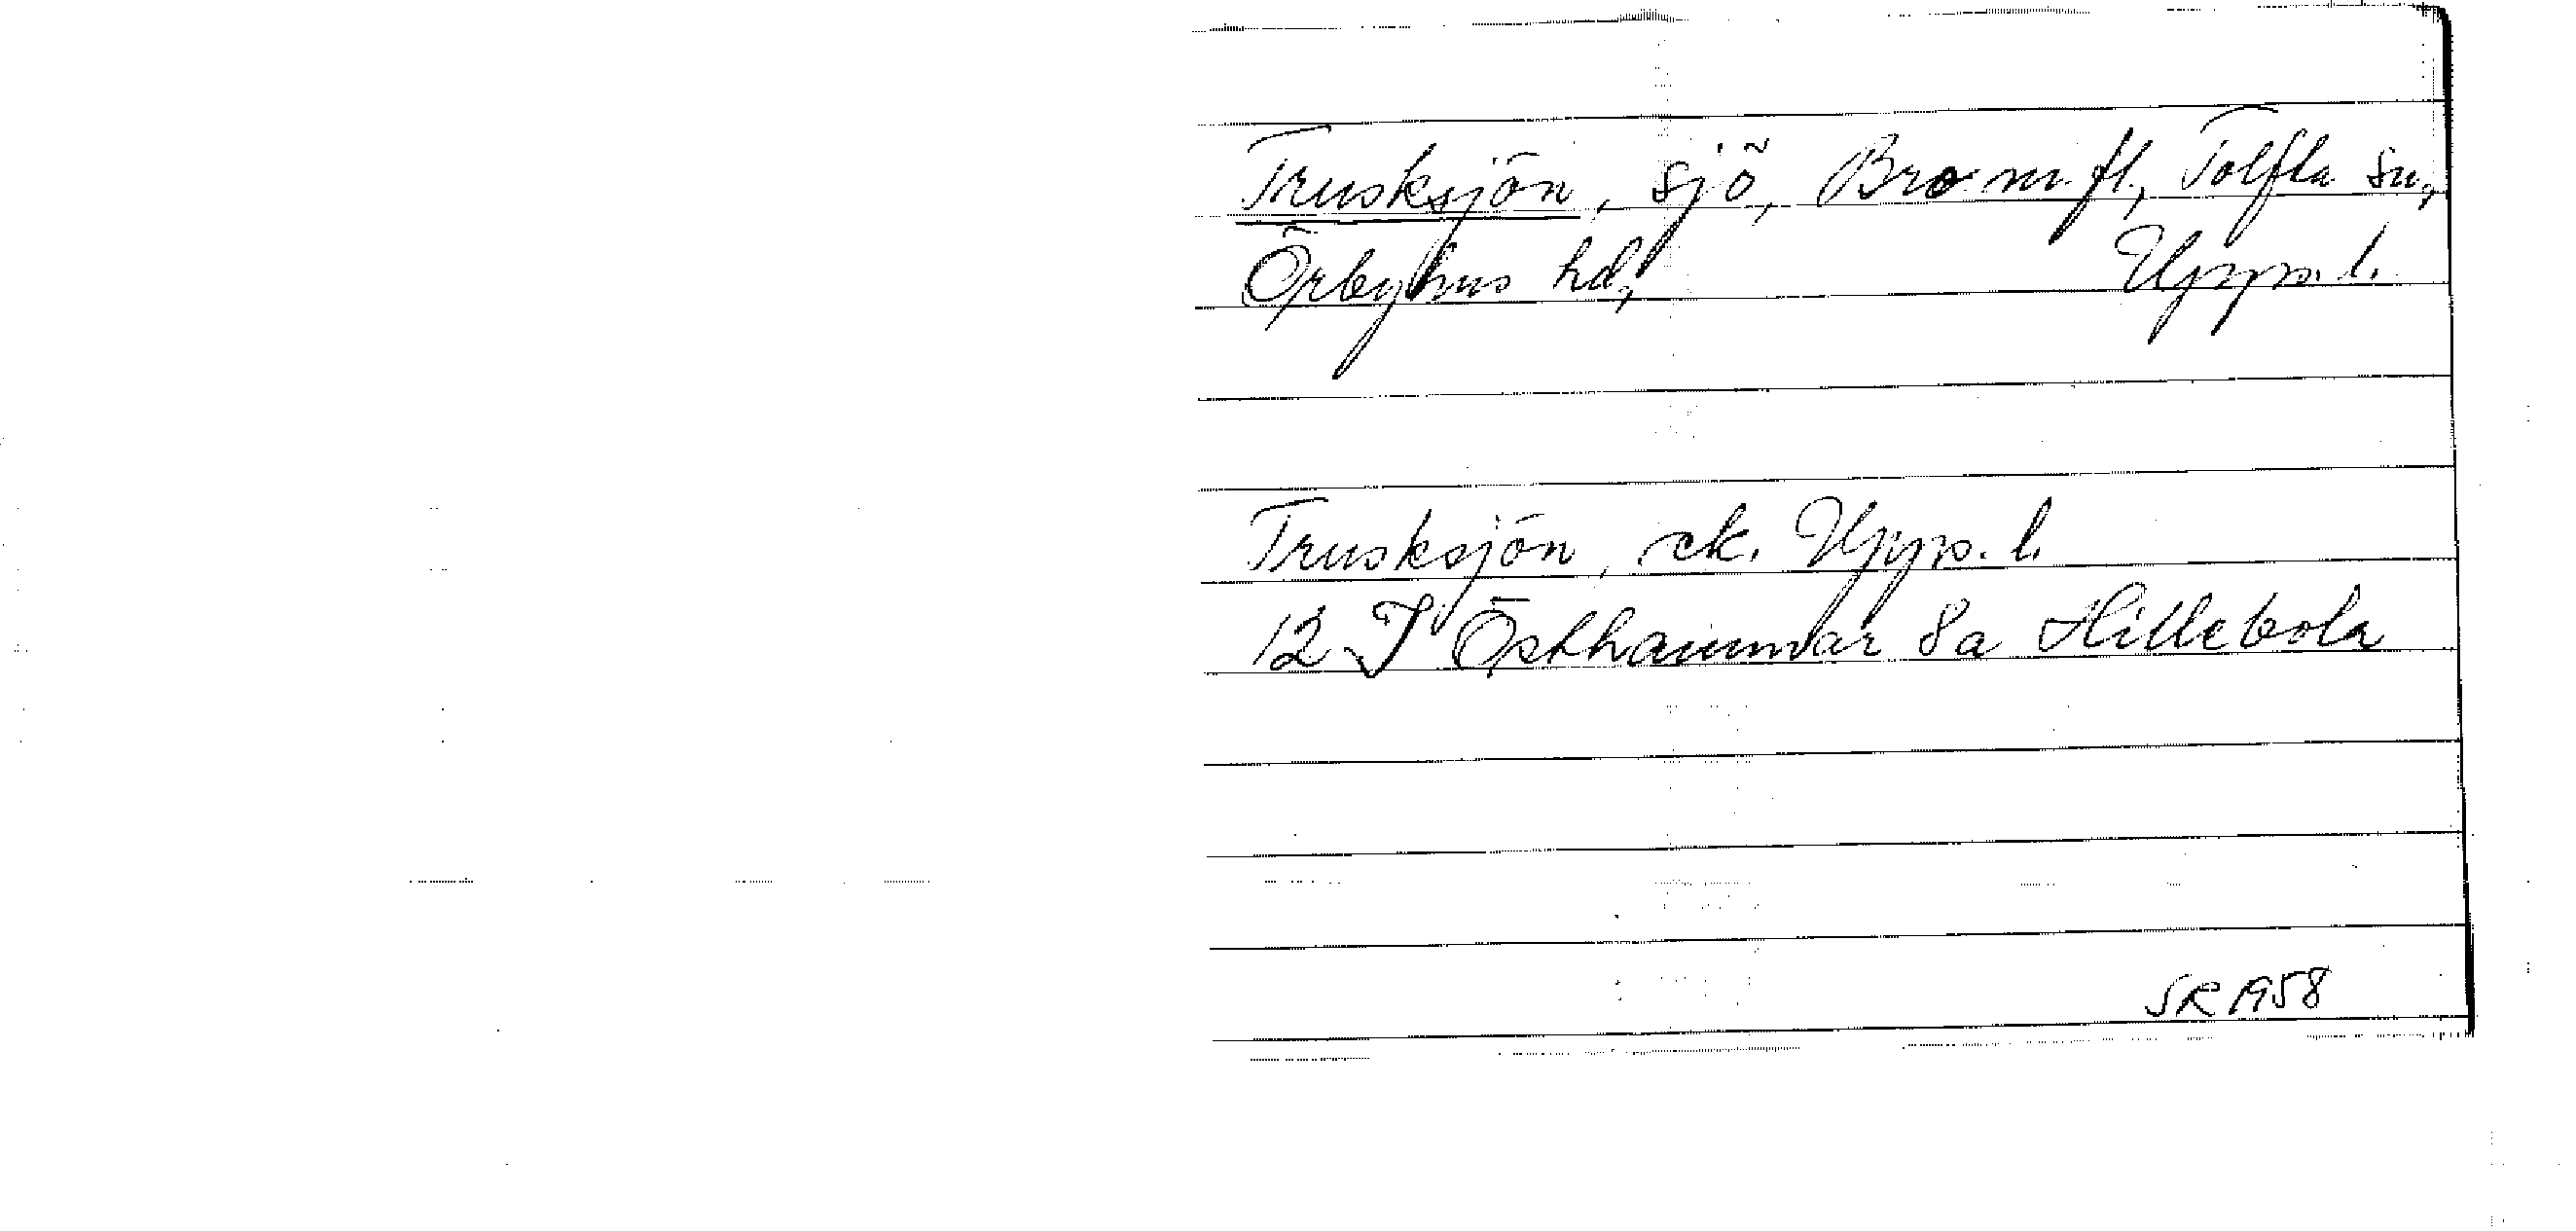 Trusksjön, sjö, Bro m.fl., Tolfta sn,
Örbyhus hd, Upps. l.
Trusksjön, ek. Upps. l.
12 I Östhammar 8a Hillebola
SR 1958